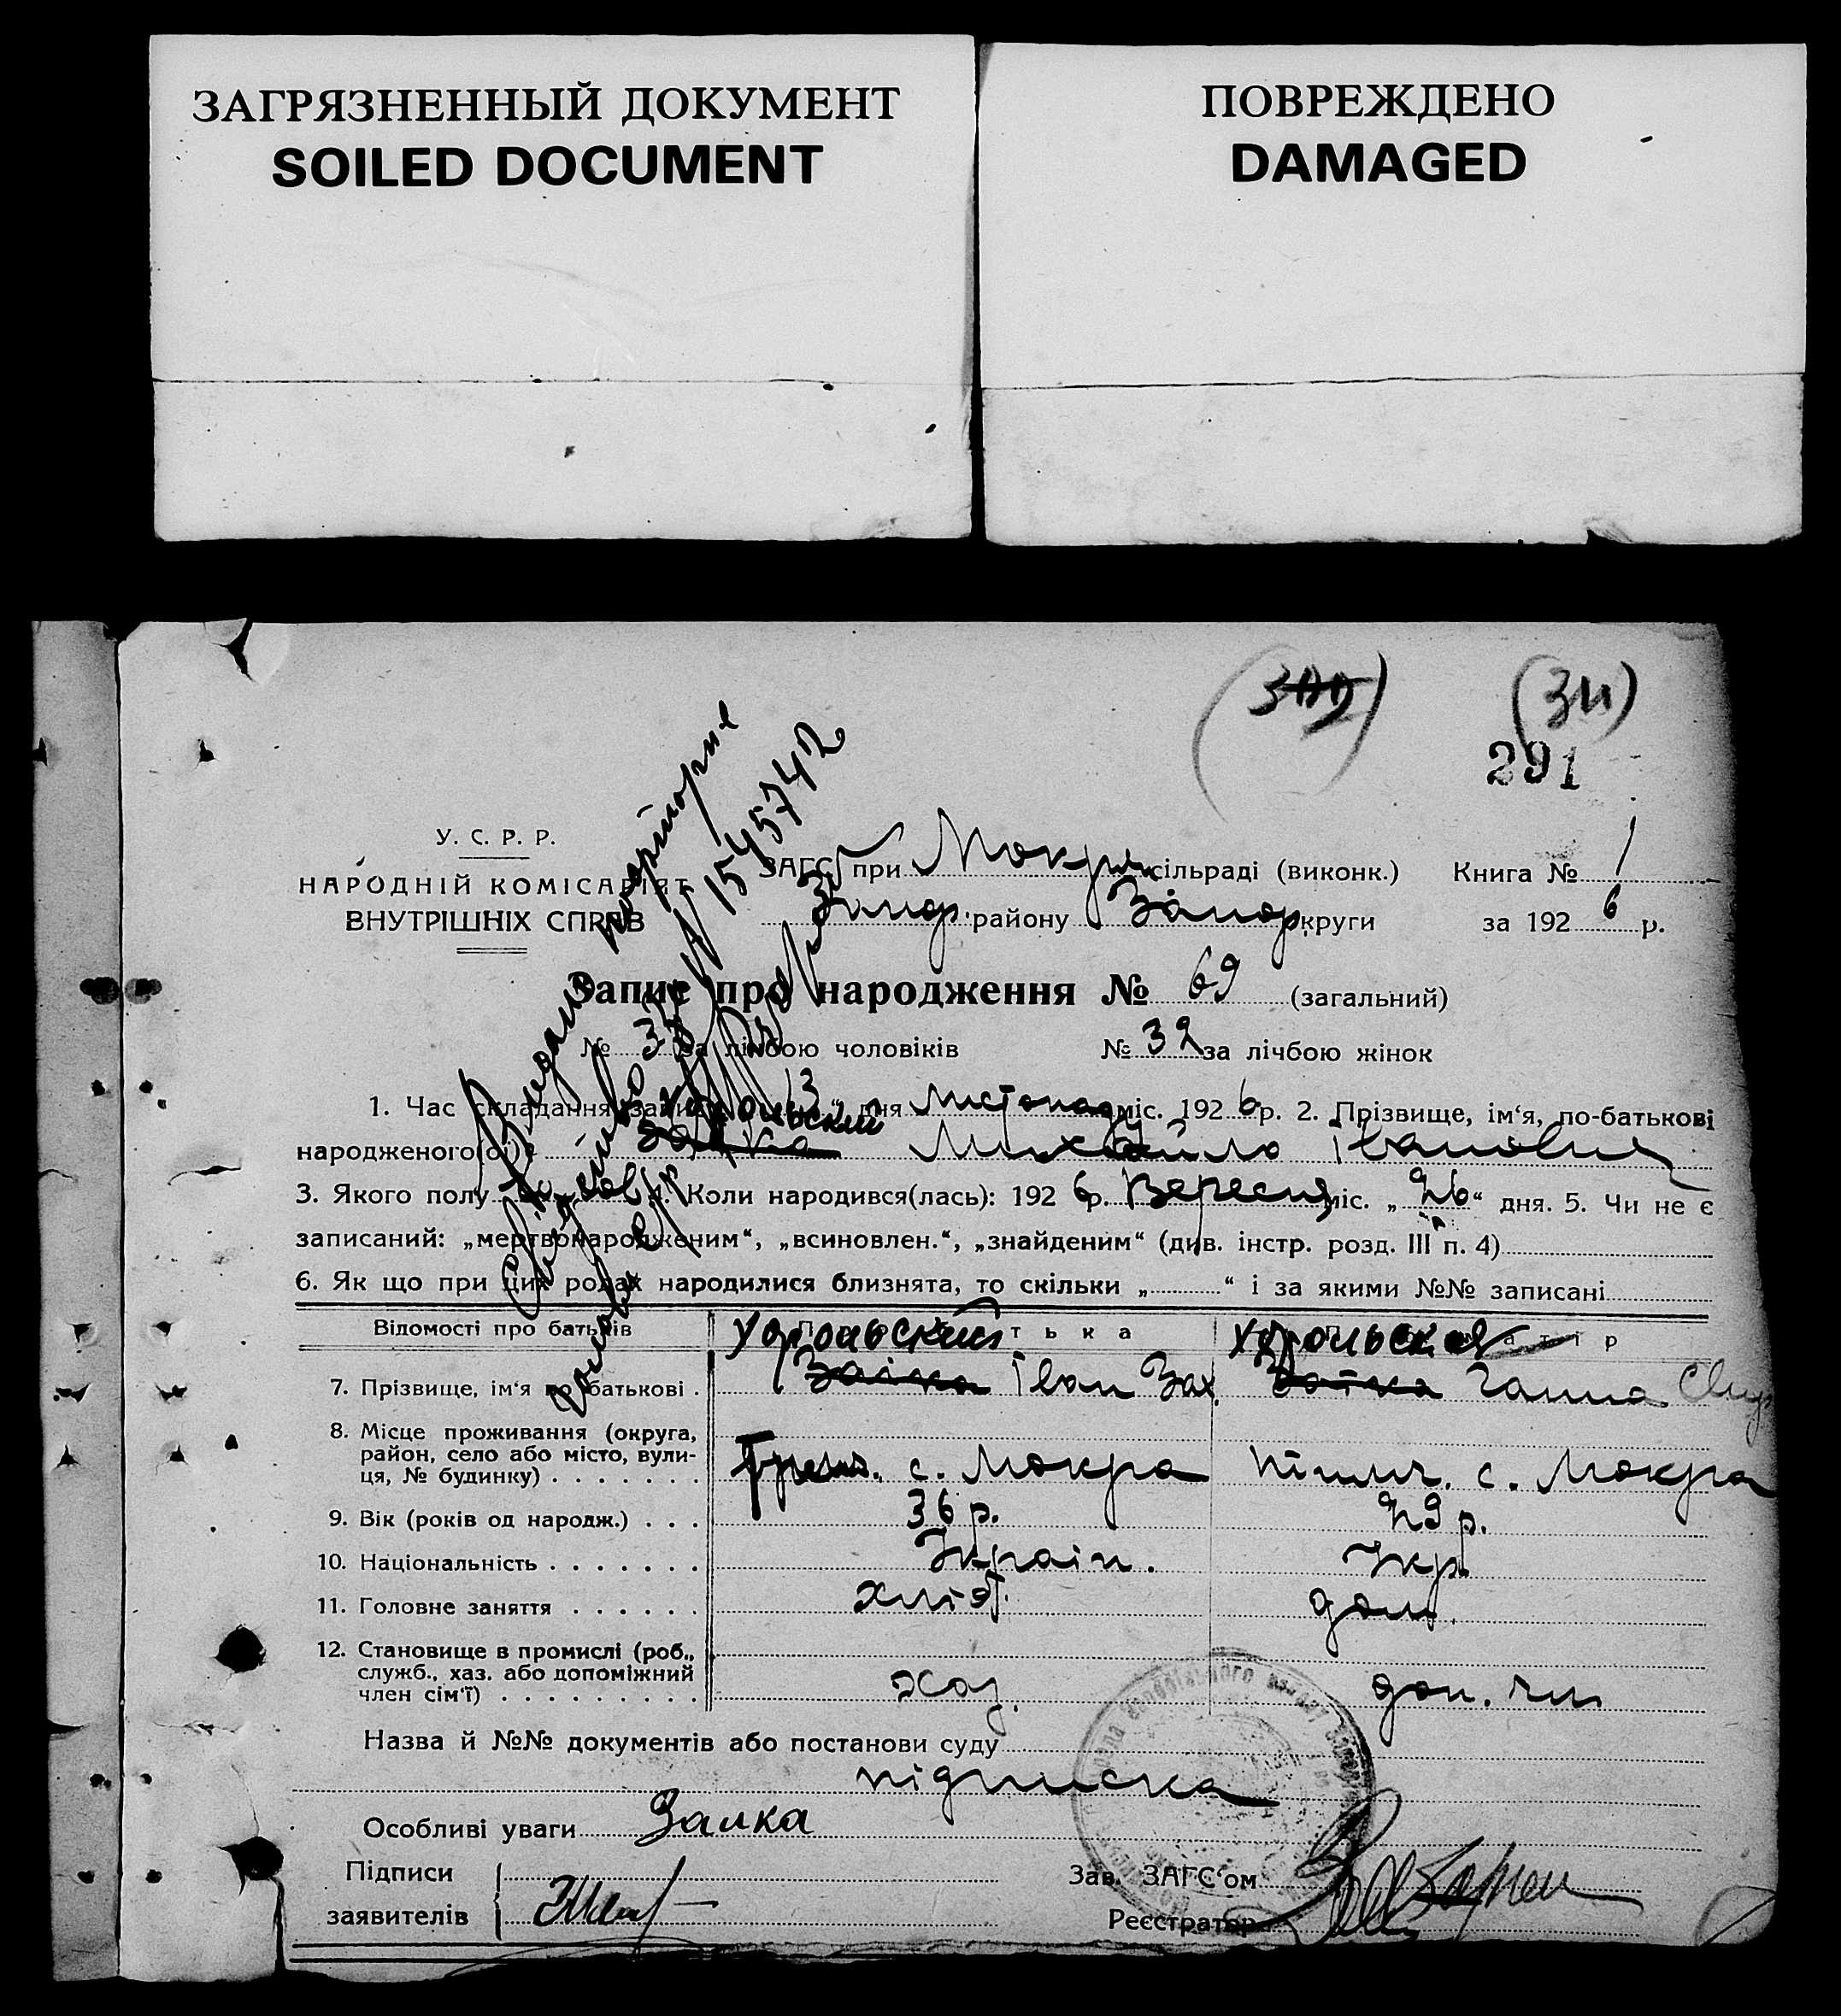 ЗАГРЯЗНЕННЫЙ ДОКУМЕНТ
SOILED DOCUMENT
ПОВРЕЖДЕНО
DAMAGED
(311)
291
У. С. Р. Р.
НАРОДНІЙ КОМІСАРІЯТ
ВНУТРІШНІХ СПРАВ
ЗАГС при Мокрян сільраді (виконк.) Книга № 1
Запор. району Запор. округи за 1926 р.
Выдано повторное
свидетельство
1545742
Запис про народження № 69 (загальний)
№ 37 за лічбою чоловіків № 32 за лічбою жінок
1. Час складання запису „13“ дня Листопаду міс. 1926 р. 2. Прізвище, ім‘я, по-батькові
Хорольский
народженого(ої) Заїка Михайло Іванович
3. Якого полу чолов 4. Коли народився(лась): 1926 р. Вересня міс. „26“ дня. 5. Чи не є
записаний: „мертвонародженим“, „всиновлен.“, „знайденим“ (див. інстр. розд. III п. 4)
6. Як що при цих родах народилися близнята, то скільки „ “ і за якими №№ записані
Відомості про батьків
Хорольский Хорольская
7. Прізвище, ім‘я по батькові . Заїка Іван Зах. Заїка Ганна
8. Місце проживання (округа,
район, село або місто, вули-
ця, № будинку) . . . . . . . с. Мокра с. Мокра
9. Вік (років од народж.) . . . 36 р. 29 р.
10. Національність . . . . . . . Україн. Укр.
11. Головне заняття . . . . . . хліб. дом.
12. Становище в промислі (роб.,
служб., хаз. або допоміжний
член сім‘ї) . . . . . . . . . хаз. доп. чл
Назва й №№ документів або постанови суду
підписка
Особливі уваги Заика
Підписи
заявителів
Зав. ЗАГС‘ом
Реєстратор